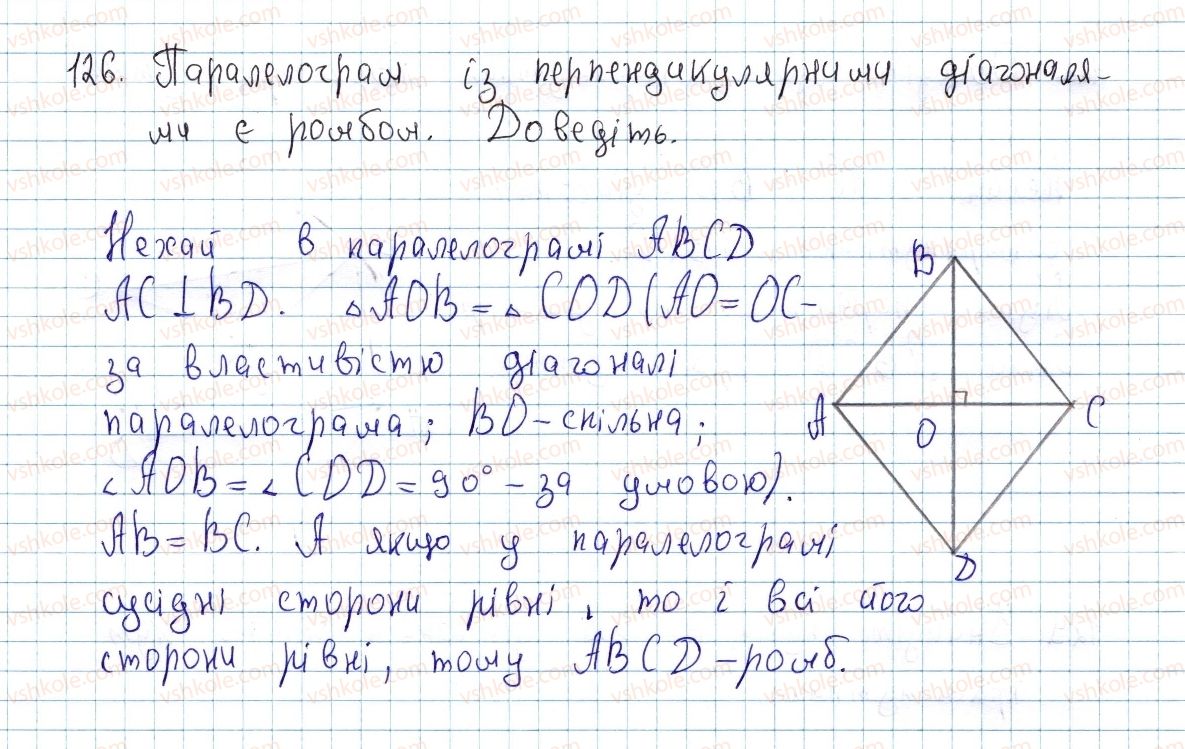 126. Паралелограм із перпендикулярними діагоналя-
ми є ромбом. Доведіть.
Нехай в паралелограмі ABCD
AC⊥BD. △AOB=△COD(AO=OC-
за властивістю діагоналі
паралелограма; BO-спільна;
∠AOB=∠COD=90°-за умовою).
AB=BC. А якщо у паралелограмі
сусідні сторони рівні, то і всі його
сторони рівні, тому ABCD-ромб.
B
A
O
C
D
vshkole.com